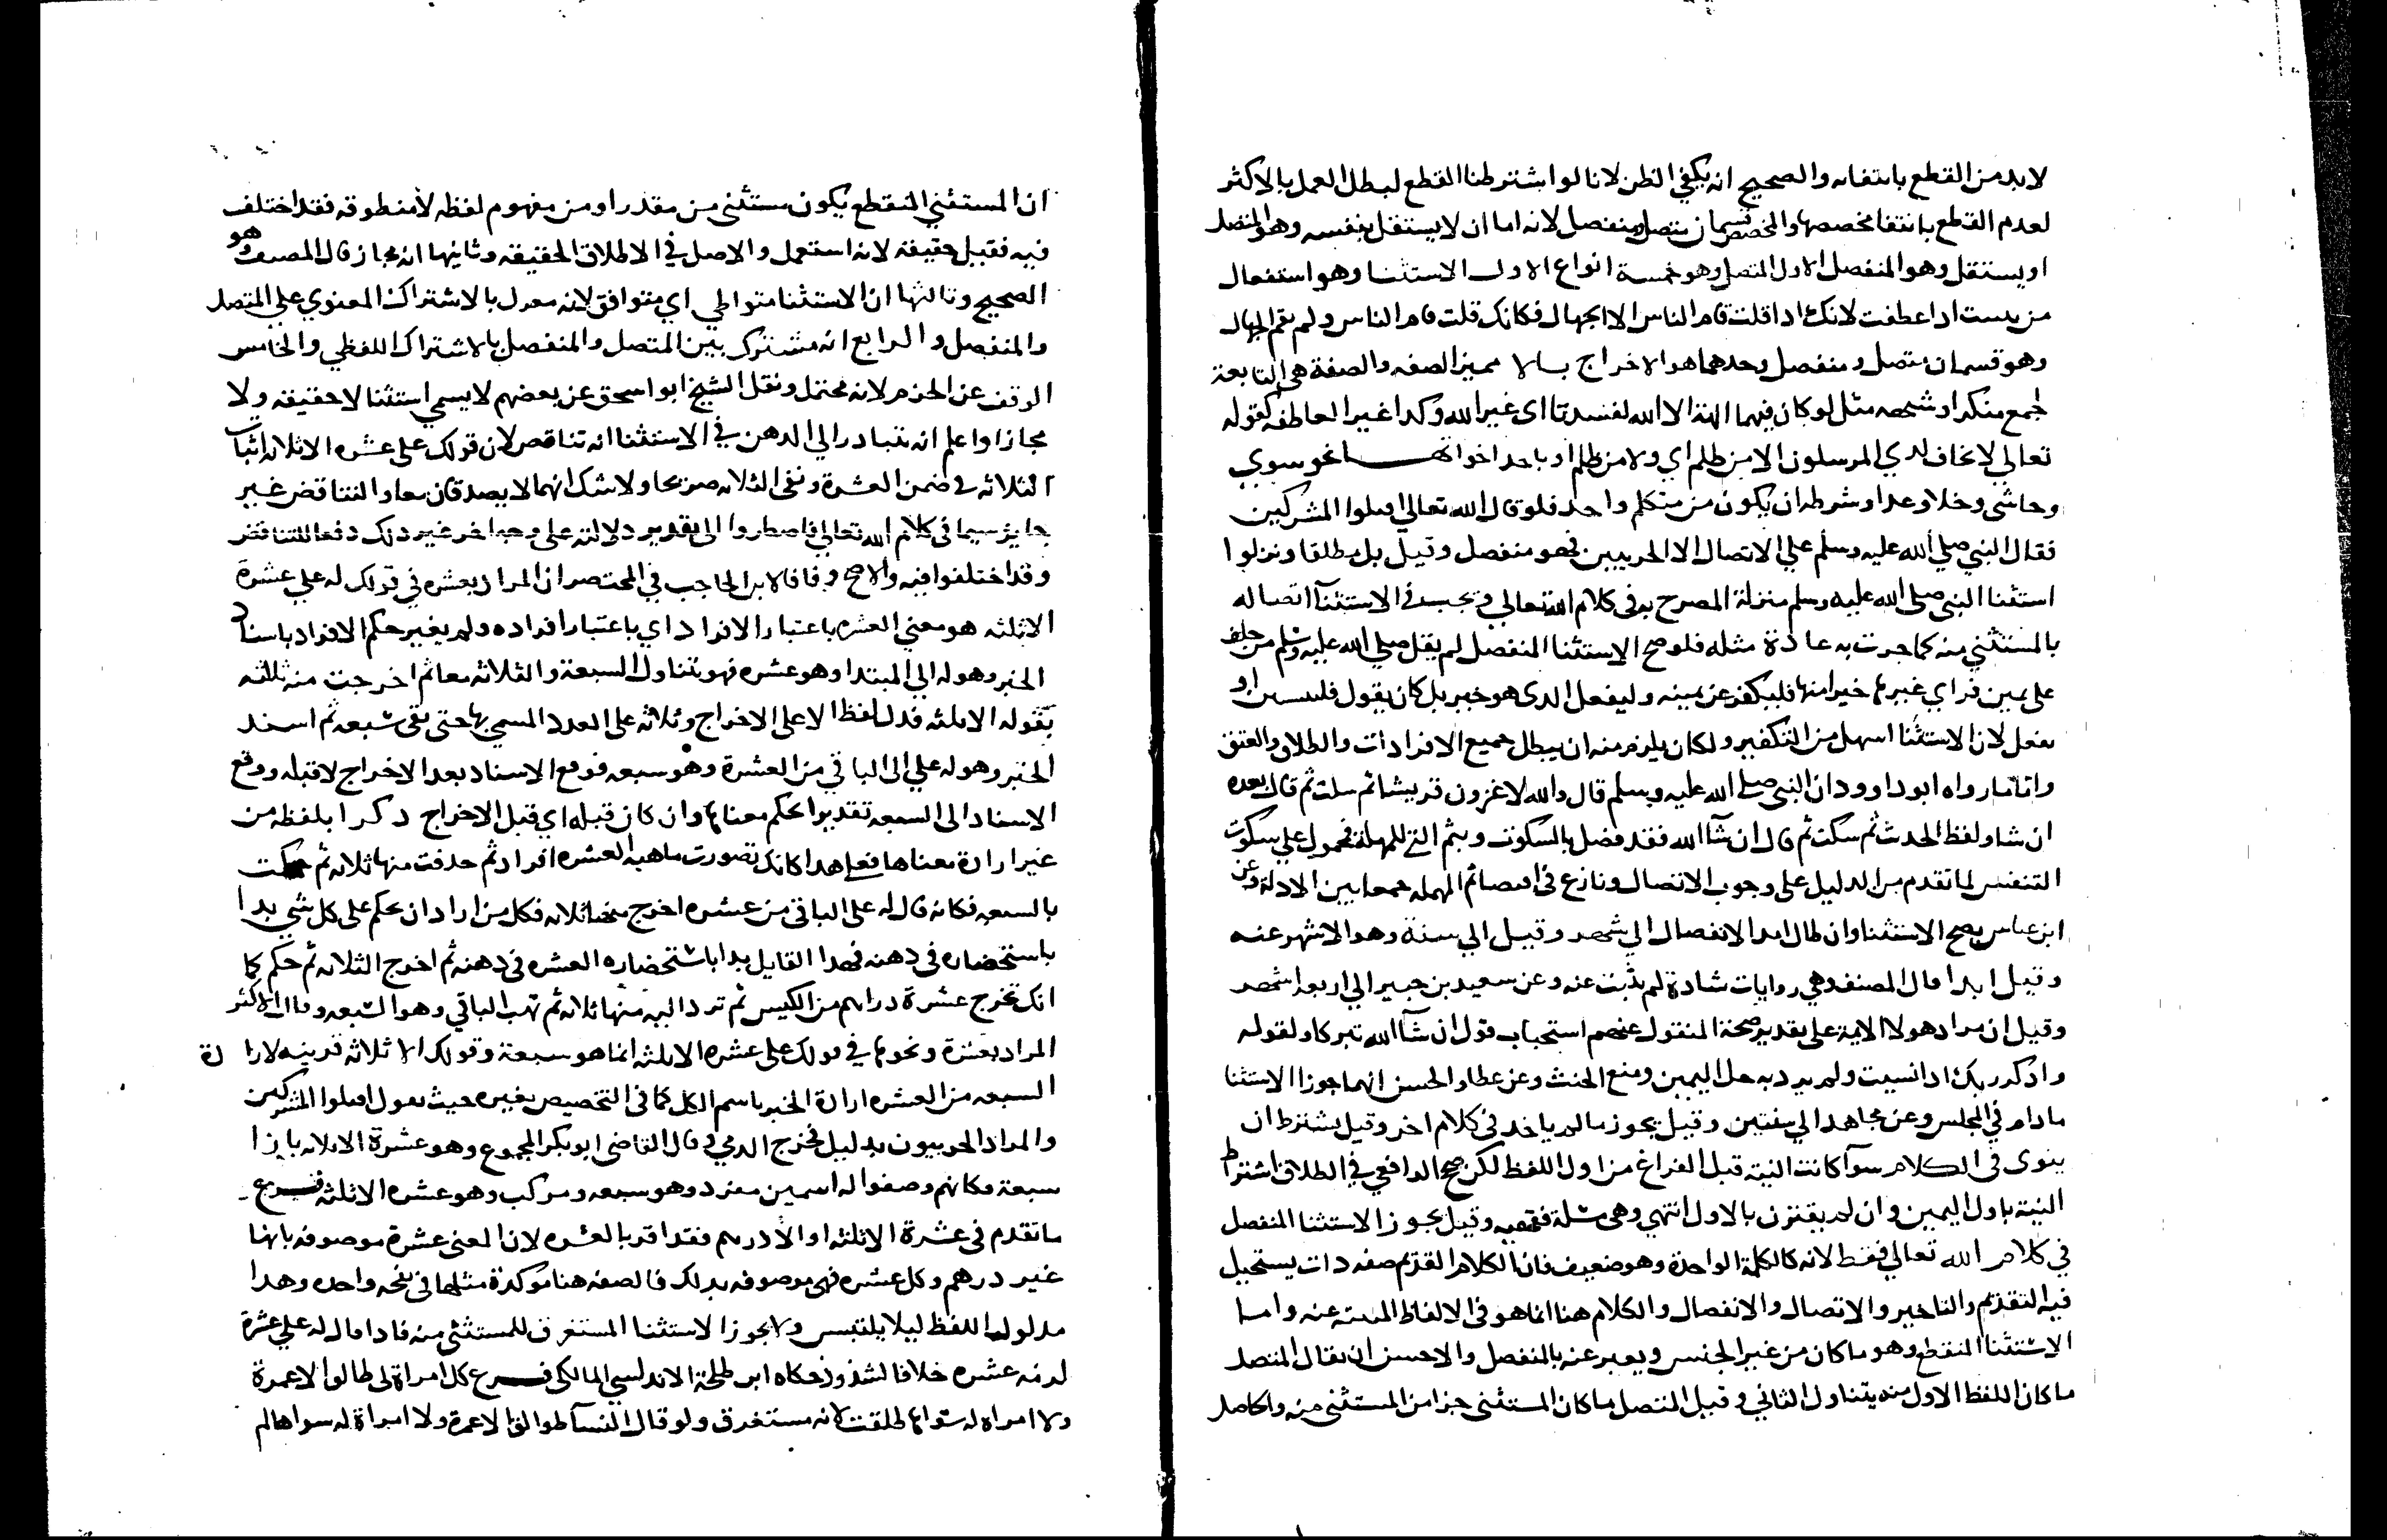 لا بد من القطع بانتفايه والصحيح انه يكفي الظن لانا لو اشترطنا القطع لبطل العمل بالاكثر
لعدم القطع بانتفا مخصصها والمخصص قسمان متصل ومنفصل لانه اما ان لا يستقل بنفسه وهو المتصل
او يستقل وهو المنفصل الاول المتصل وهو خمسة انواع الاول الاستثنا وهو استفعال
من ىىىت ادا عطفت لانك ادا قلت قام الناس الا الجهال فكانك قلت قام الناس ولم يقم الجهال
وهو قسمان متصل ومنفصل وحدهما هو الاخراج بالا مميز الصفه والصفة هي التابعة
لجمع منكر او شبهه مثل لو كان فيهما الهة الا الله لفسدتا اى غير الله وكدا غير العاطفه كقوله
تعالي لا يخاف لدي المرسلون الا من ظلم اي ولا من ظلم او باحد اخواتها نحو سوي
وحاشى وخلا وعدا وشرطه ان يكون من متكلم واحد فلو قال الله تعالي اقتلوا المشركين
فقال النبي صلي الله عليه وسلم علي الاتصال الا الحربيين فهو منفصل وقيل بل مطلقا ونزلوا
استثنا النبي صلي الله عليه وسلم منزلة المصرح به في كلام الله تعالي ويجب في الاستثنآ اتصاله
بالمستثني منه كما جرت به عادة مثله فلو صح الاستثنا المنفصل لم يقل صلي الله عليه وسلم من حلف
على يمين فراي غيرها خيرا منها فليكفر عن يمينه وليفعل الدى هو خير بل كان يقول فليستثن او
يفعل لان الاستثنا اسهل من التكفير ولكان يلزم منه ان يبطل جميع الاقرارات والطلاق والعتق
واما ما رواه ابو داوود ان النبي صلي الله عليه وسلم قال والله لاغزون قريشا ثم سكت ثم قال بعده
ان شا ولفظ الحدث ثم سكت ثم قال ان شآ الله فقد فصل بالسكوت وبثم التي للمهلة فمحمول علي سكوت
التنفس لما تقدم من الدليل على وجوب الاتصال ونازع في اقتضا ثم المهله جمعا بين الادلة وعن
ابن عباس يصح الاستثنا وان طال امد الانفصال الي شهر وقيل الي سنة وهو الاشهر عنه
وقيل ابدا قال المصنف وهي روايات شادة لم يثبت عنه وعن سعيد بن جبير الي اربعه اشهر
وقيل ان مراد هولا الايمة على تقدير صحة المنقول عنهم استحباب قول ان شآ الله تبركا ولقوله
وادكر ربك ادا نسيت ولم يرد به حل اليمين ومنع الحنث وعن عطا والحسن انهما جوزا الاستثنا
ما دام في المجلس وعن مجاهد الي سنتين وقيل يجوز ما لم ياخد في كلام اخر وقيل يشترط ان
ينوى في الكلام سوآ كانت النية قبل الفراغ من اول اللفظ لكن صح الرافعي في الطلاق اشتراط
النية باول اليمين وان لم يقترن بالاول انتهي وهى مسلة فقهيه وقيل يجوز الاستثنا المنفصل
في كلام الله تعالي فقط لانه كالكلمة الواحدة وهو ضعيف فان الكلام القديم صفه دات يستحيل
فيه التقديم والتاخير والاتصال والانفصال والكلام هنا انما هو في الالفاظ المبينه عنه واما
الاستثنا المنقطع وهو ما كان من غير الجنس ويعبر عنه بالمنفصل والاحسن ان يقال المتصل
ما كان اللفظ الاول منه يتناول الثاني وقيل المتصل ما كان المستثنى جزا من المستثنى منه والحاصل
ان المستثني المنقطع يكون مستثنى من مقدر او من مفهوم لفظه لا منطوقه فقد اختلف
فيه فقيل حقيقة لانه استعمل والاصل في الاطلاق الحقيقه وثانيها انه مجاز قال المصنف وهو
الصحيح وثالثها ان الاستثنا متواطي اي متوافق لانه مقول بالاشتراك المعنوي على المتصل
والمنفصل والرابع انه مشترك بين المتصل والمنفصل بالاشتراك اللفظي والخامس
الوقف عن الجزم لانه محتمل ونقل الشيخ ابو اسحق عن بعضهم لا يسمي استثنا لا حقيقه ولا
مجازا واعلم انه يتبادر الي الدهن في الاستثنا انه تناقض لان قولك علي عشره الا ثلاثه اثبات
الثلاثه في ضمن العشرة ونفي الثلاثه صريحا ولا شك انهما لا يصدقان معا والتناقض غير
جايز سيما في كلام الله تعالي فاضطروا الى تقدير دلالته على وجه اخر غير دلك دفعا للتناقض
وقد اختلفوا فيه والاصح وفاقا لابن الحاجب في المختصر ان المراد بعشره في قولك له علي عشرة
الا ثلثه هو معنى العشره باعتبار الافراد اي باعتبار افراده ولم يغير حكم الافراد باسناد
الخبر وهو له الي المبتدا وهو عشره فهو يتناول السبعة والثلاثه معا ثم اخرجت منه ثلثه
بقوله الا ثلثه فدل لفظ الا على الاخراج وثلاثه على العدد المسمي بها حتى بقي سبعه ثم اسند
الخبر وهو له علي الى الباقي من العشرة وهو سبعه فوقع الاسناد بعد الاخراج لا قبله ووقع
الاسناد الى السبعه تقديرا بحكم معناها وان كان قبله اي قبل الاخراج دكرا بلفظه من
غير ارادة معناها فعلي هدا كانك تصورت ماهيه العشره افراد ثم حدفت منها ثلاثه ثم حكمت
بالسبعه فكانه قال له على الباقي من عشره اخرج منها ثلاثه فكل من اراد ان يحكم على كل شي بدا
باستحضاره في دهنه فهدا القايل بدا باستحضاره العشره في دهنه ثم اخرج الثلاثه ثم حكم كما
انك تخرج عشرة دراهم من الكيس ثم ترد اليه منها ثلاثه ثم تهب الباقي وهو السبعه وقال الاكثر
المراد بعشرة ونحوها في قولك على عشره الا ثلثه انما هو سبعة وقولك الا ثلاثه قرينه لارادة
السبعه من العشره ارادة الخبر باسم الكل كما في التخصيص بغيره حيث يقول اقتلوا المشركين
والمراد الحربيون بدليل مخرج الدمي وقال القاضى ابو بكر المجموع وهو عشرة الا ثلاثه بازا
سبعة فكانهم وضعوا له اسمين مفرد وهو سبعه ومركب وهو عشره الا ثلثه فرع
ما تقدم في عشرة الا ثلثه اوالا درهم فقد اقر بالعشره لان المعنى عشرة موصوفه بانها
غير درهم وكل عشره فهي موصوفه بدلك فالصفه هنا موكدة مثلها في نفخه واحده وهدا
مدلولها اللفظ ليلا يلتبس ولا يجوز الاستثنا المستغرق للمستثنى منه فادا قال له علي عشرة
لزمه عشره خلافا لشذوذ حكاه ابن طلحة الاندلسي المالكي فرع كل امراة لي طالق الا عمرة
ولا امراة له سواها طلقت لانه مستغرق ولو قال النسآ طوالق الا عمرة ولا امراة له سواها لم